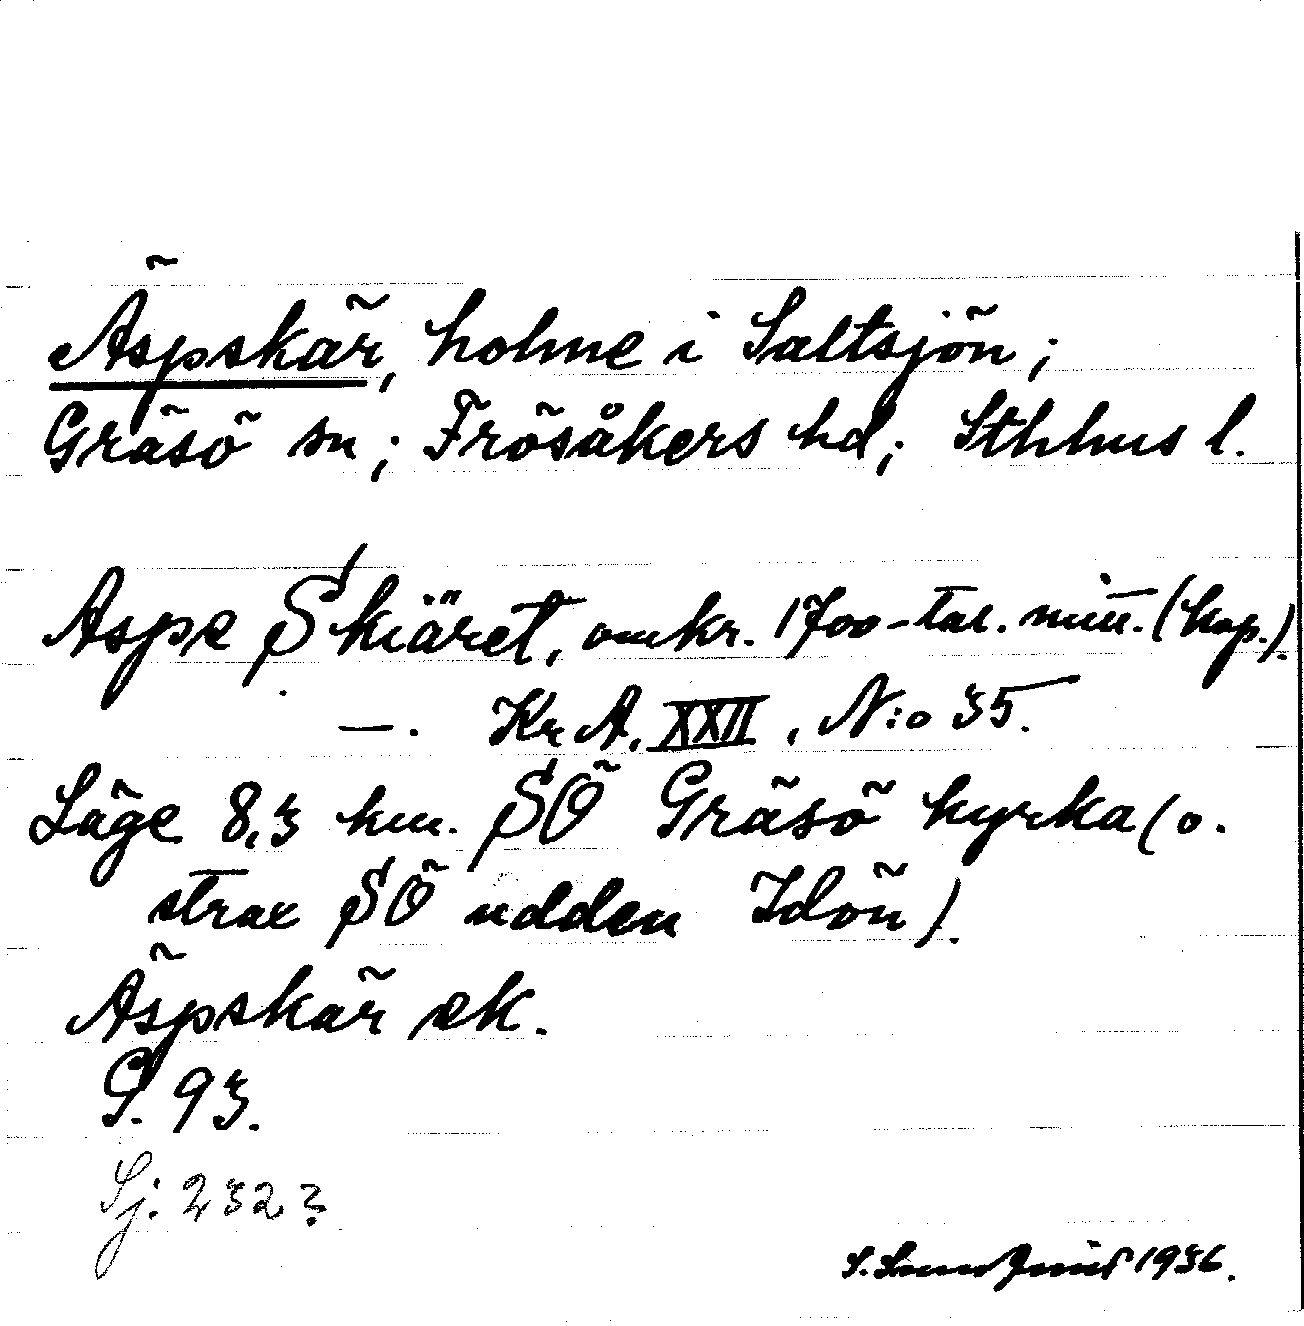 Äspskär, holme i Saltsjön;
Gräsö sn; Frösåkers hd; Sthhus l.
Aspe Skiäret, omkr. 1700-tal. mitt. (kop.).
—. Kr A. XXII, N:o 35.
Läge 8,3 km. SÖ Gräsö kyrka (o.
strax SÖ udden Idön).
Äspskär ek.
G. 93.
Sj. 232?
S. Sundqvist 1936.